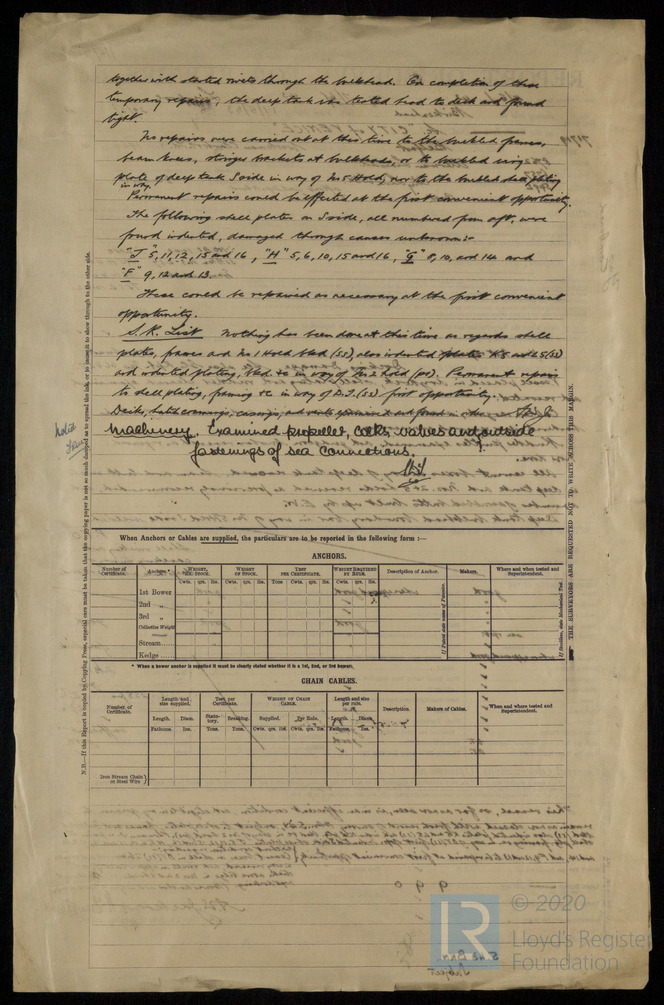 together with started rivets through the bulkhead. On completion of these
temporary repairs, the deep tank was tested head to deck and found
tight.
No repairs were carried out at this time to the buckled frames,
beam knees, stringer brackets at bulkheads, or to buckled wing
plate of deep tank S side in way of No 5 Hold, nor to the buckled shell plating
in way.
Permanent repairs could be effected at the first convenient opportunity.
The following shell plates on S side, all numbered from aft, were
found indented, damaged through causes unknown:-
"J" 5, 11, 12, 15 and 16, "H" 5, 6, 10, 15 and 16, "G" 8, 10, and 14 and
"F" 9, 12 and 13.
These could be repaired as necessary at the first convenient
opportunity.
S.R. List Nothing has been done at this time as regards shell
plates, frames and No 1 Hold bhd (SS), also indented plates K8 and L5 (SS)
and indented plating, bhd &c in way of No 2 hold (PS). Permanent repairs
to shell plating, framing &c in way of D.T. (SS) first opportunity.
Decks, hatch coamings, casings, and vents examined and found in order.
Machinery. Examined propeller, cocks, valves and outside
fastenings of sea connections.
N.B.—If this Report is copied by Copying Press, especial care must be taken that the copying paper is not so much damped as to spread the ink, or to cause it to show through to the other side.
THE SURVEYORS ARE REQUESTED NOT TO WRITE ACROSS THIS MARGIN.
When Anchors or Cables are supplied, the particulars are to be reported in the following form :—
ANCHORS.
Number of Certificate. Anchors.* WEIGHT, EX. STOCK. WEIGHT OF STOCK. TEST PER CERTIFICATE. WEIGHT REQUIRED BY RULE. Description of Anchor. Makers. Where and when tested and Superintendent.
Cwts. qrs. lbs. Cwts. qrs. lbs. Tons Cwts. Cwts. qrs. lbs.
If Patent state name of Patentee.
If Stockless, state Mechanical Test
1st Bower
2nd „
3rd „
Collective Weight
Stream
Kedge
* When a bower anchor is supplied it must be clearly stated whether it is a 1st, 2nd, or 3rd Bower.
CHAIN CABLES.
Number of Certificate. Length and size supplied. Test per Certificate. WEIGHT OF CHAIN CABLE. Length and size per rule. Description. Makers of Cables. Where and when tested and Superintendent.
Length. Diam. Statutory. Breaking. Supplied. Per Rule. Length. Diam.
Fathoms. Ins. Tons. Tons. Cwts. qrs. lbs. Cwts. qrs. lbs. Fathoms. Ins.
Iron Stream Chain or Steel Wire
LR
© 2020
Lloyd's Register
Foundation